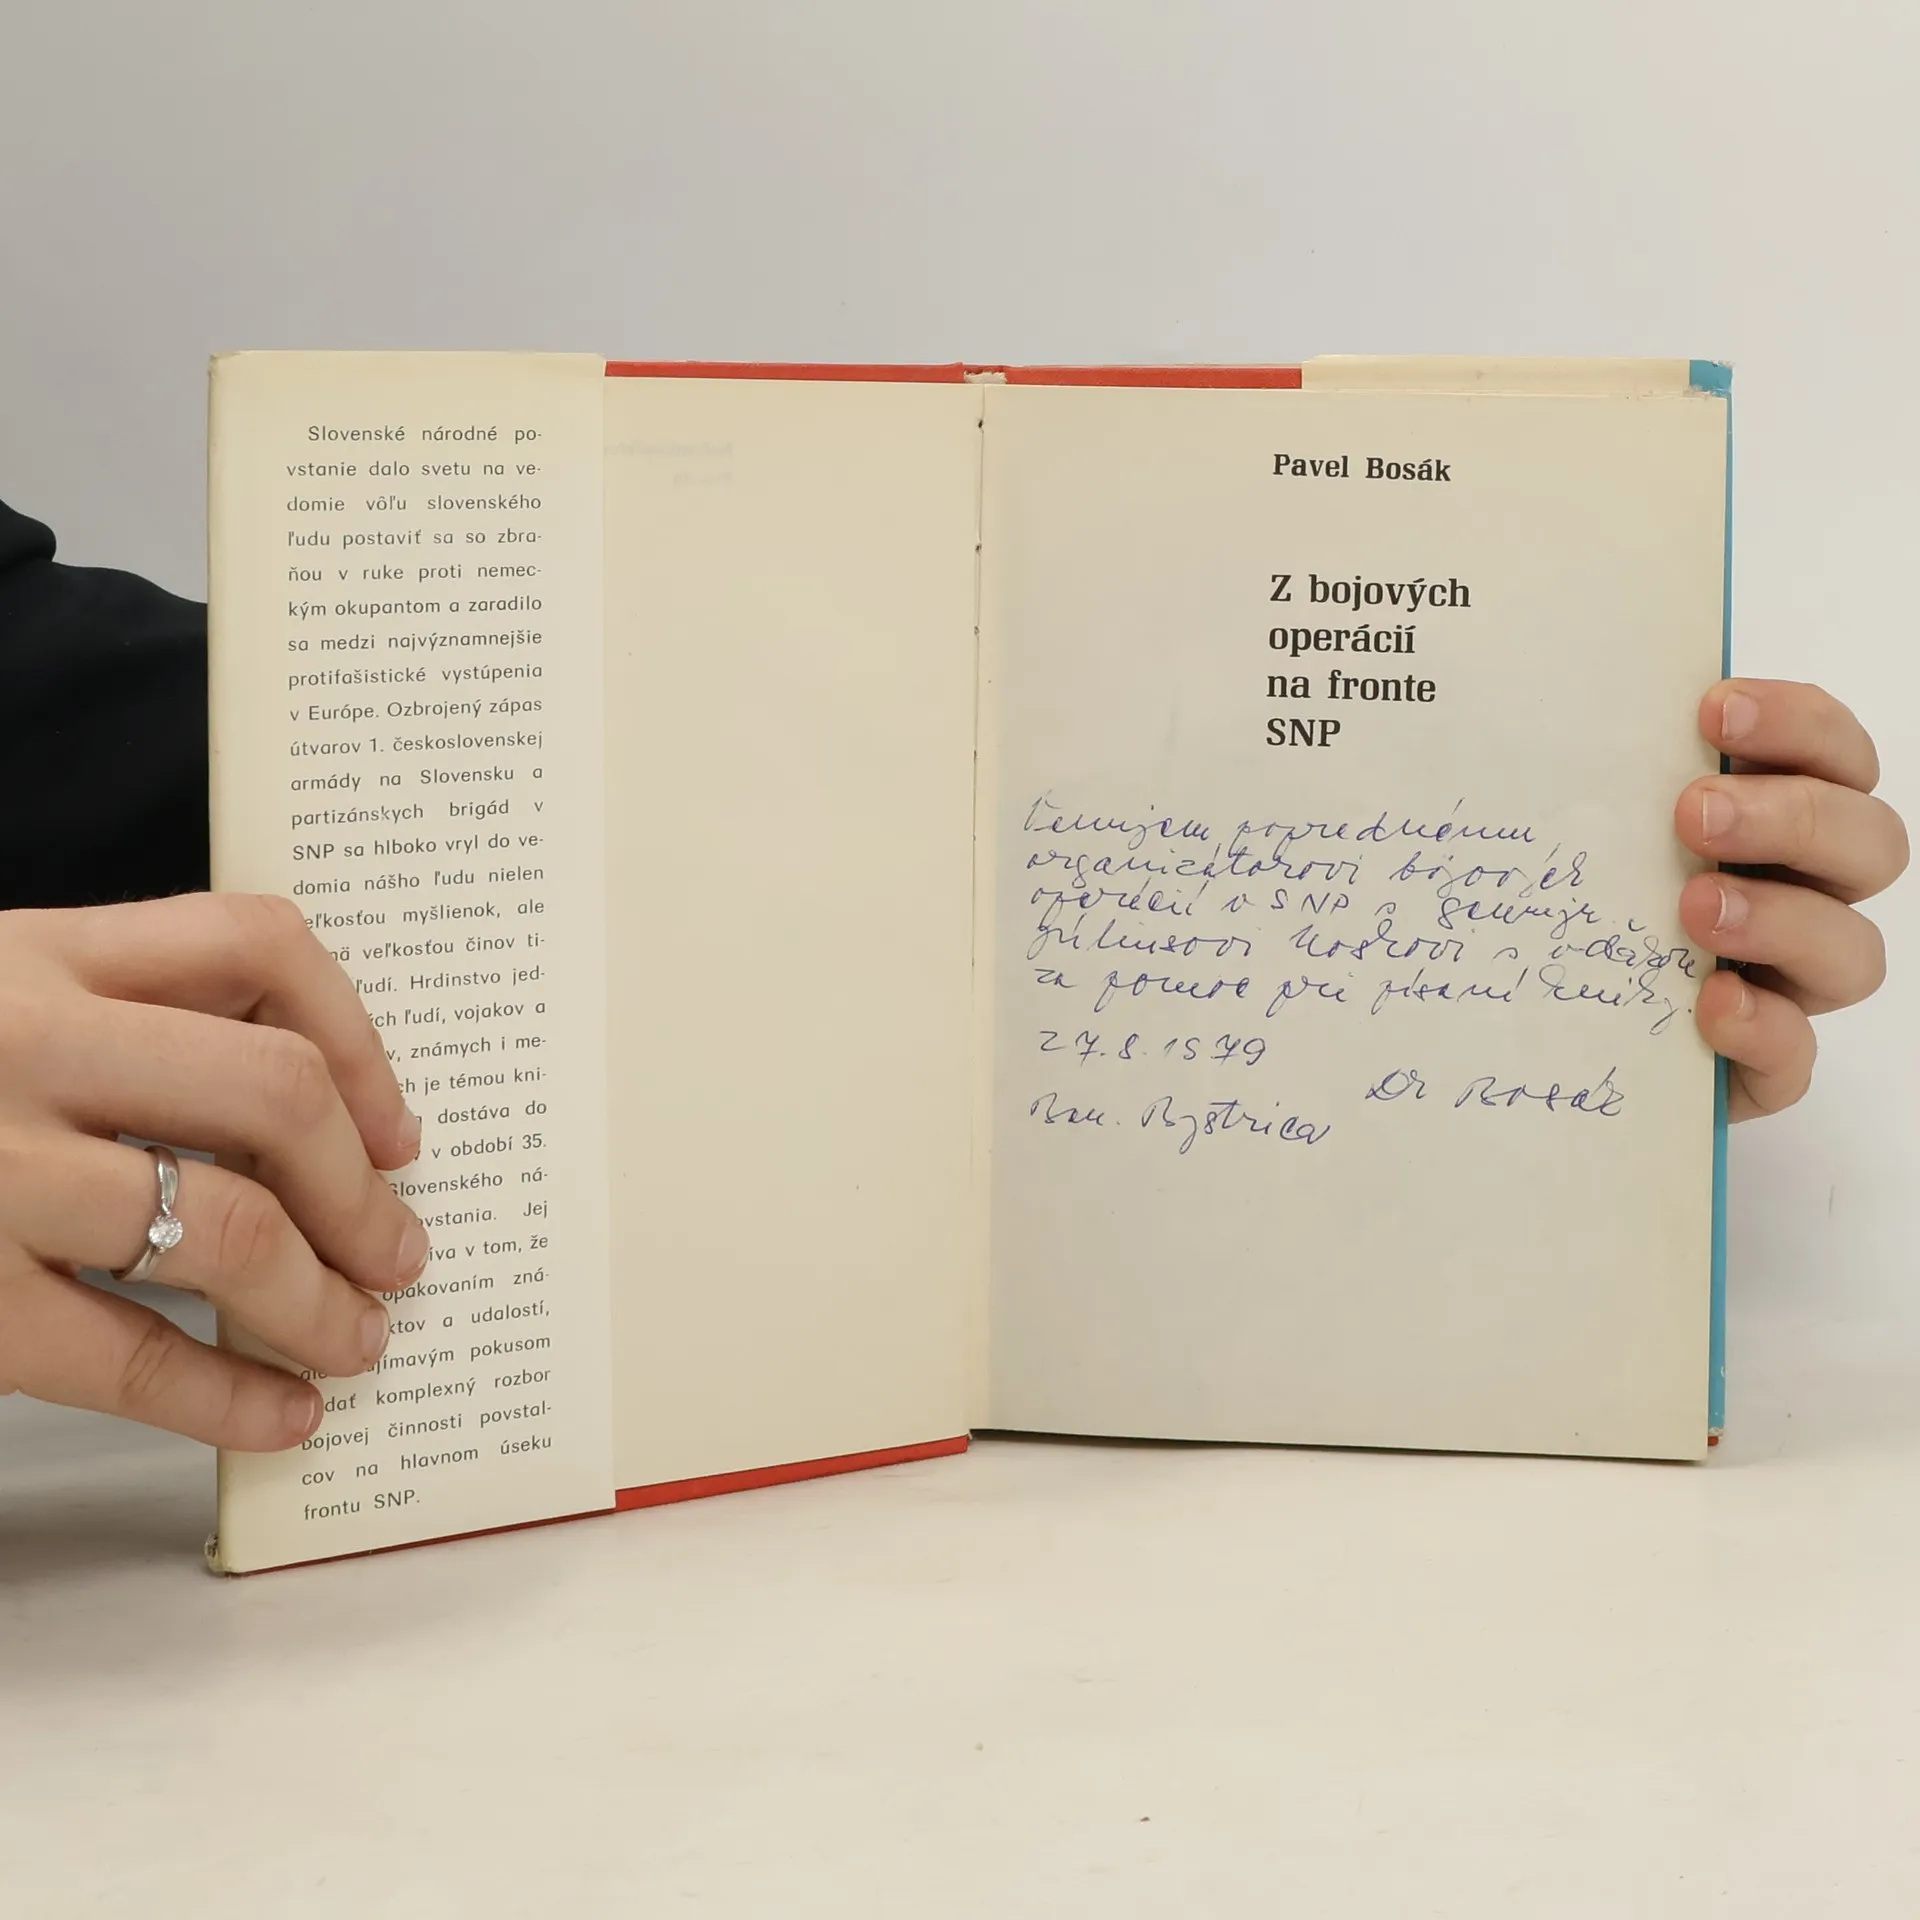 Slovenské národné po-
vstanie dalo svetu na ve-
domie vôľu slovenského
ľudu postaviť sa so zbra-
ňou v ruke proti nemec-
kým okupantom a zaradilo
sa medzi najvýznamnejšie
protifašistické vystúpenia
v Európe. Ozbrojený zápas
útvarov 1. československej
armády na Slovensku a
partizánskych brigád v
SNP sa hlboko vryl do ve-
domia nášho ľudu nielen
eľkosťou myšlienok, ale
nä veľkosťou činov ti-
ľudí. Hrdinstvo jed-
ých ľudí, vojakov a
v, známych i me-
ch je témou kni-
dostáva do
v období 35.
Slovenského ná-
ovstania. Jej
íva v tom, že
opakovaním zná-
ktov a udalostí,
ale ujímavým pokusom
dať komplexný rozbor
bojovej činnosti povstal-
cov na hlavnom úseku
frontu SNP.
Pavel Bosák
Z bojových
operácií
na fronte
SNP
Venujem poprednému
organizátorovi bojových
operácií v SNP s.
Júliusovi Noskovi s vďakou
za pomoc pri písaní knihy.
27.8.1979
Dr Bosák
Ban. Bystrica